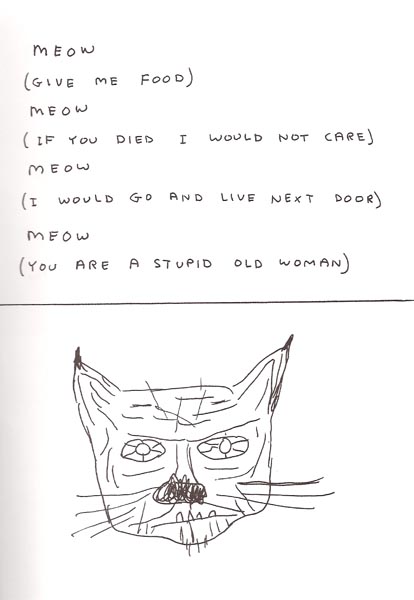 MEOW
(GIVE ME FOOD)
MEOW
(IF YOU DIED I WOULD NOT CARE)
MEOW
(I WOULD GO AND LIVE NEXT DOOR)
MEOW
(YOU ARE A STUPID OLD WOMAN)